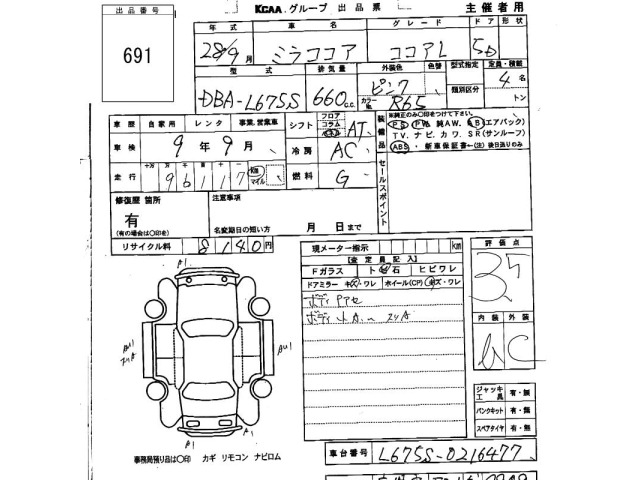 出品番号
691
KCAA グループ 出品票
主催者用
年式 車名 グレード ドア 形状
28/9月 ミラココア ココアL 5D
型式 排気量 外装色 色替 型式指定 定員・積載
DBA-L675S 660 C.C. ピンク 類別区分 4名
カラーNo. R65 トン
車歴 自家用 レンタ 事業、営業車
シフト フロア コラム AT
装備品 ※純正のみ○印をつけて下さい。
PS PW 純AW. AB(エアバック)
TV. ナビ. カワ. SR(サンルーフ)
ABS ・新車保証書←(注)後日送りのみ
車検 9年9月
冷房 AC
走行 十万 万 千 百 十 一
96117 km マイル
燃料 G
セールスポイント
修復歴 箇所
有
(有の場合は○印を)
注意事項
名変期日の短い方 月 日まで
リサイクル料 8140円
現メーター指示 km
評価点
3.5
【査定員記入】
Fガラス ト 石 ヒビワレ
ドアミラー キズ・ワレ ホイール(CP) キズ・ワレ
ボディ
ボディ
A1
AU1
AU1
A1
内装 外装
C
ジャッキ 工具 有・無
パンクキット 有・無
スペアタイヤ 有・無
車台番号 L675S-0216477
事務局預り品は○印 カギ リモコン ナビロム